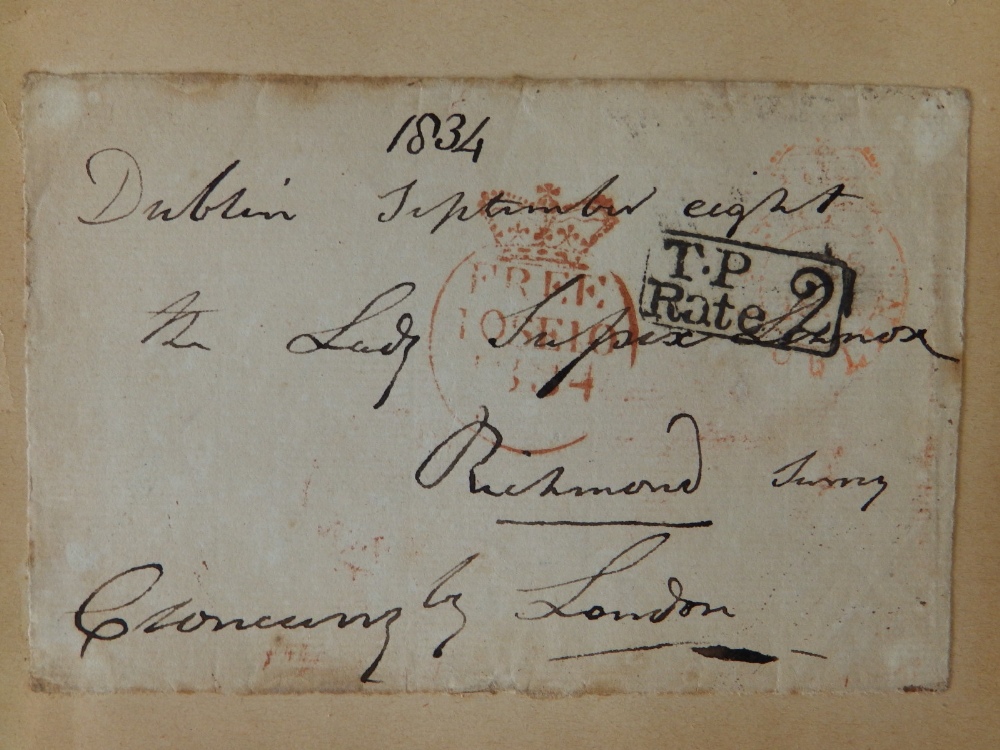 1834
Dublin September eight
T.P
Rate 2
the Lady Sussex Lennox
FREE
10SE10
1834
Richmond Surrey
Cloncurry by London